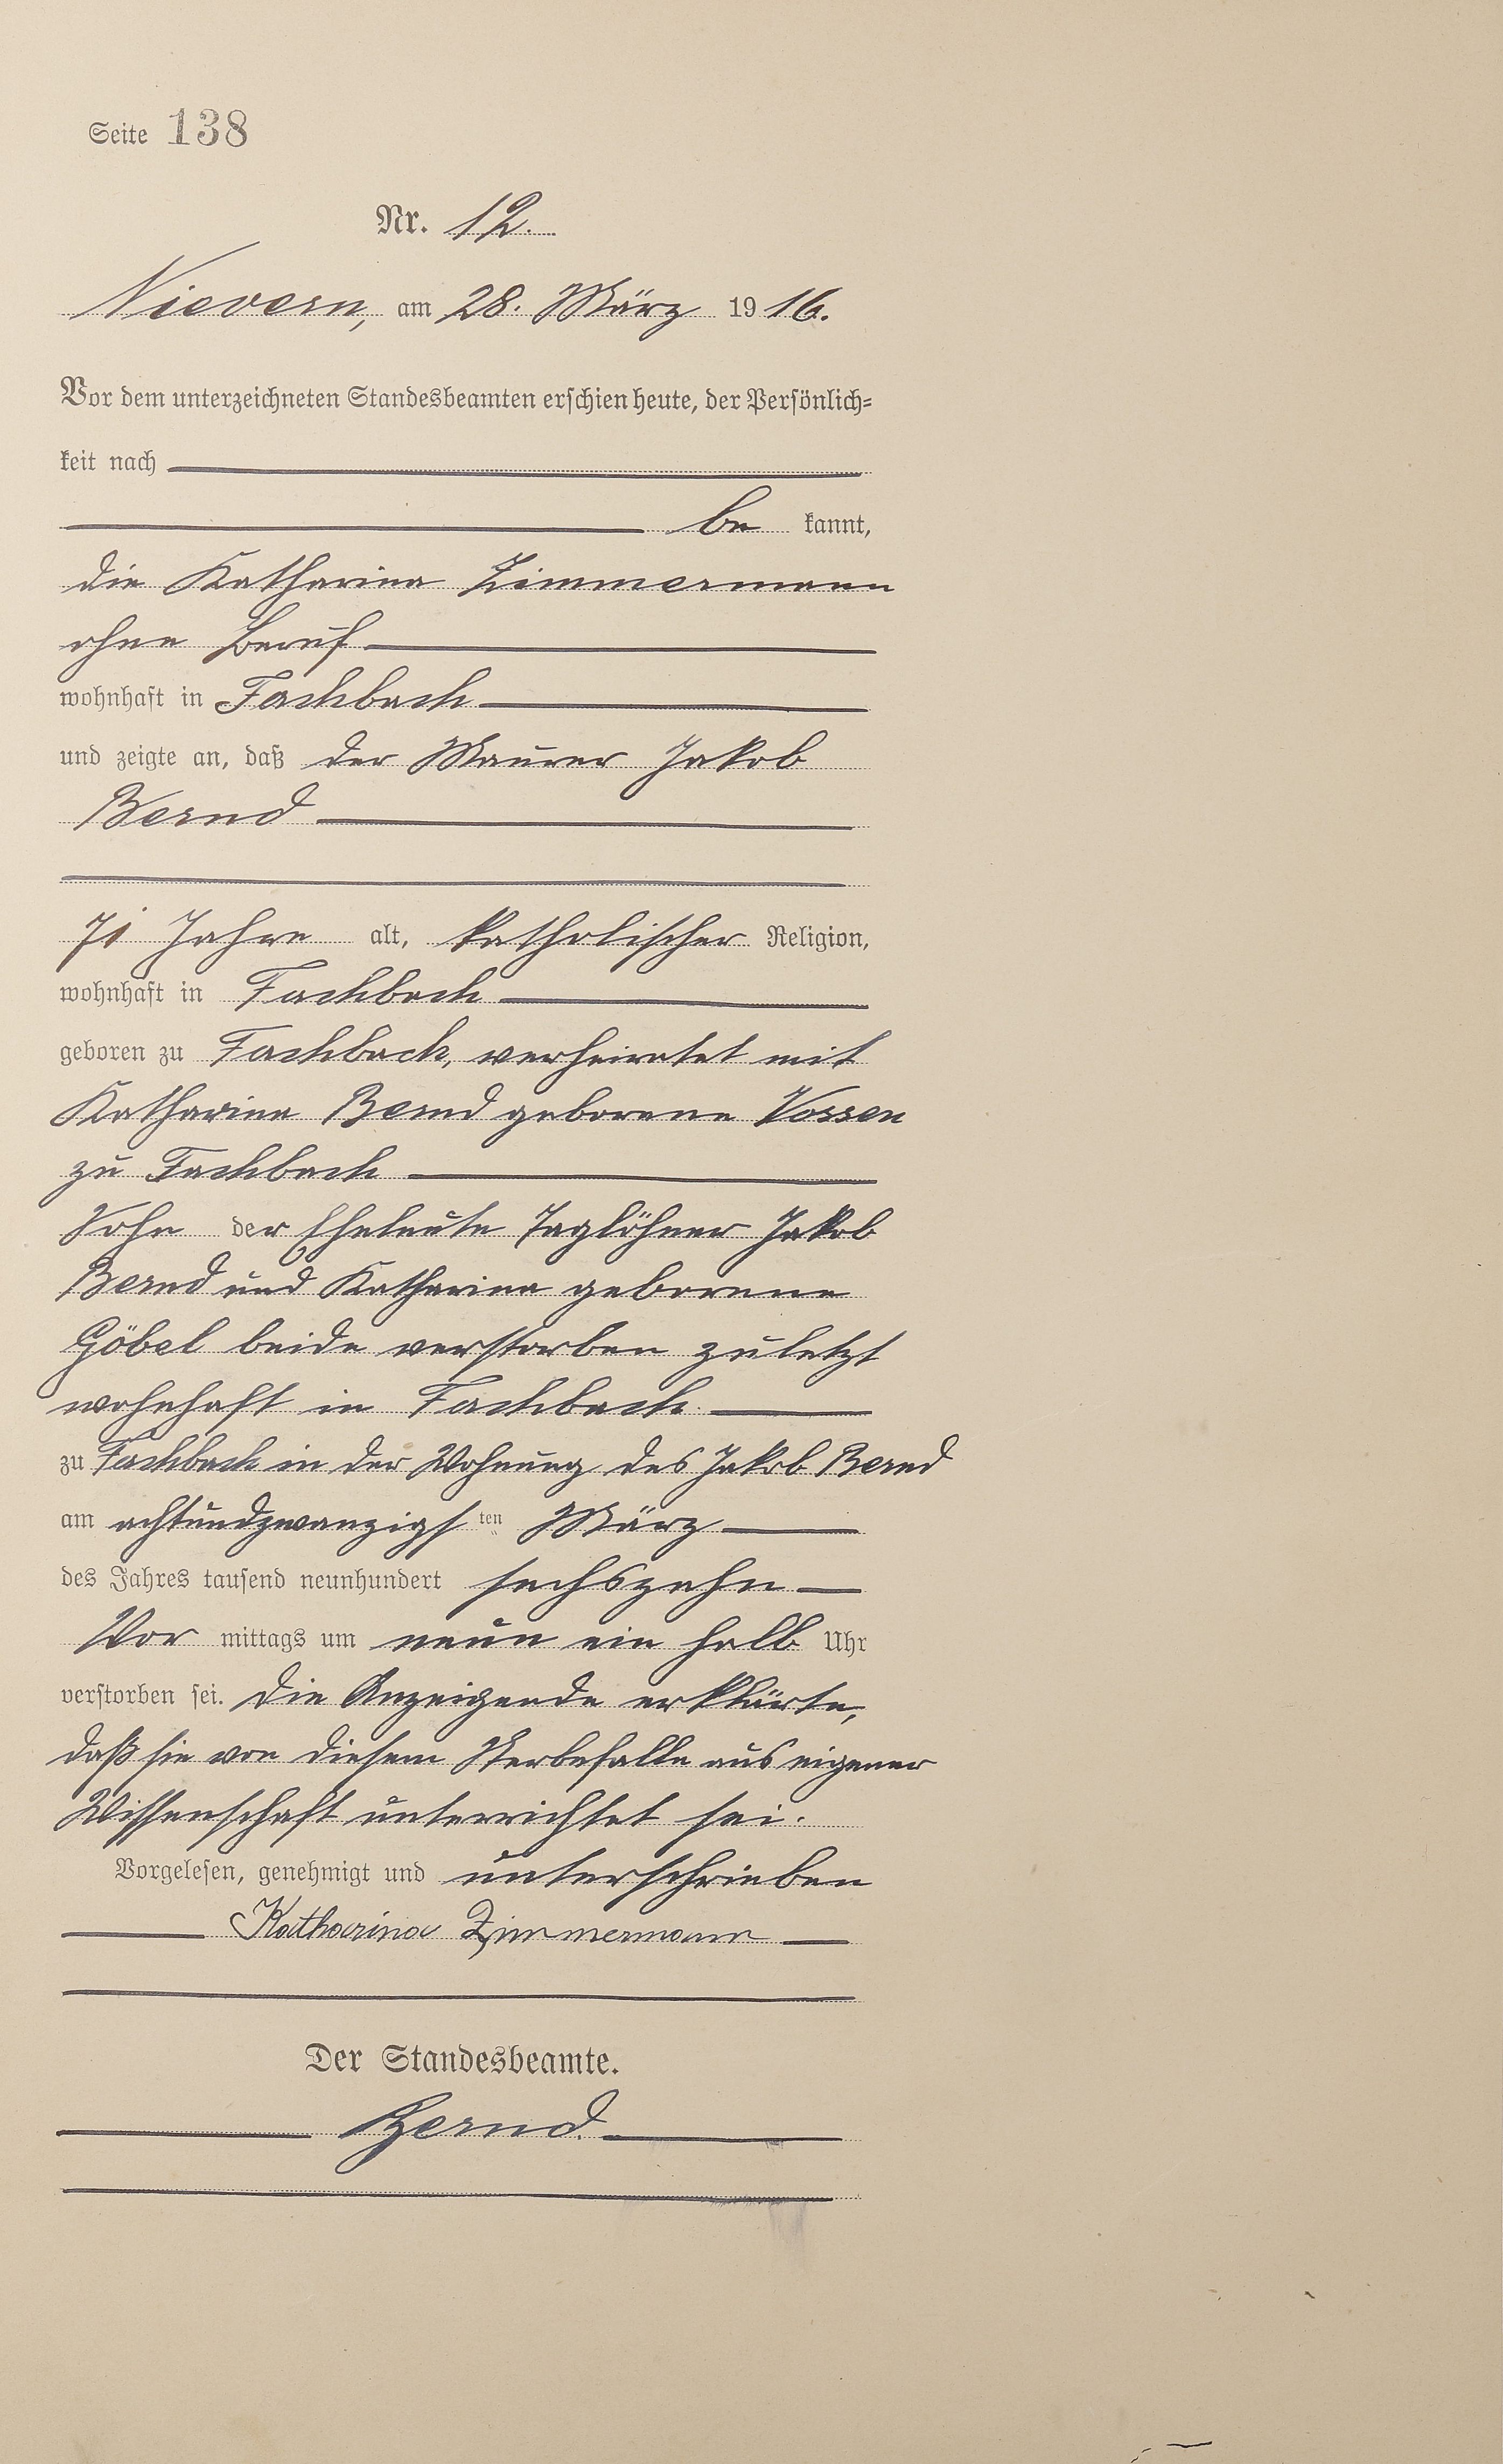 Seite 138
Nr. 12.
Nievern, am 28. März 1916.
Vor dem unterzeichneten Standesbeamten erschien heute, der Persönlich-
keit nach
be kannt,
die Katharina Zimmermann
ohne Beruf
wohnhaft in Fachbach
und zeigte an, daß der Maurer Jakob
Bernd
71 Jahre alt, katholischer Religion,
wohnhaft in Fachbach
geboren zu Fachbach, verheiratet mit
Katharina Bernd geborene Vossen
zu Fachbach
Sohn der Eheleute Taglöhner Jakob
Bernd und Katharina geborene
Göbel beide verstorben zuletzt
wohnhaft in Fachbach
zu Fachbach in der Wohnung des Jakob Bernd
am achtundzwanzigsten März
des Jahres tausend neunhundert sechszehn
Vor mittags um neun ein halb Uhr
verstorben sei. Die Anzeigende erklärte,
daß sie von diesem Sterbefalle aus eigener
Wissenschaft unterrichtet sei.
Vorgelesen, genehmigt und unterschrieben
Katharina Zimmermann
Der Standesbeamte.
Bernd.